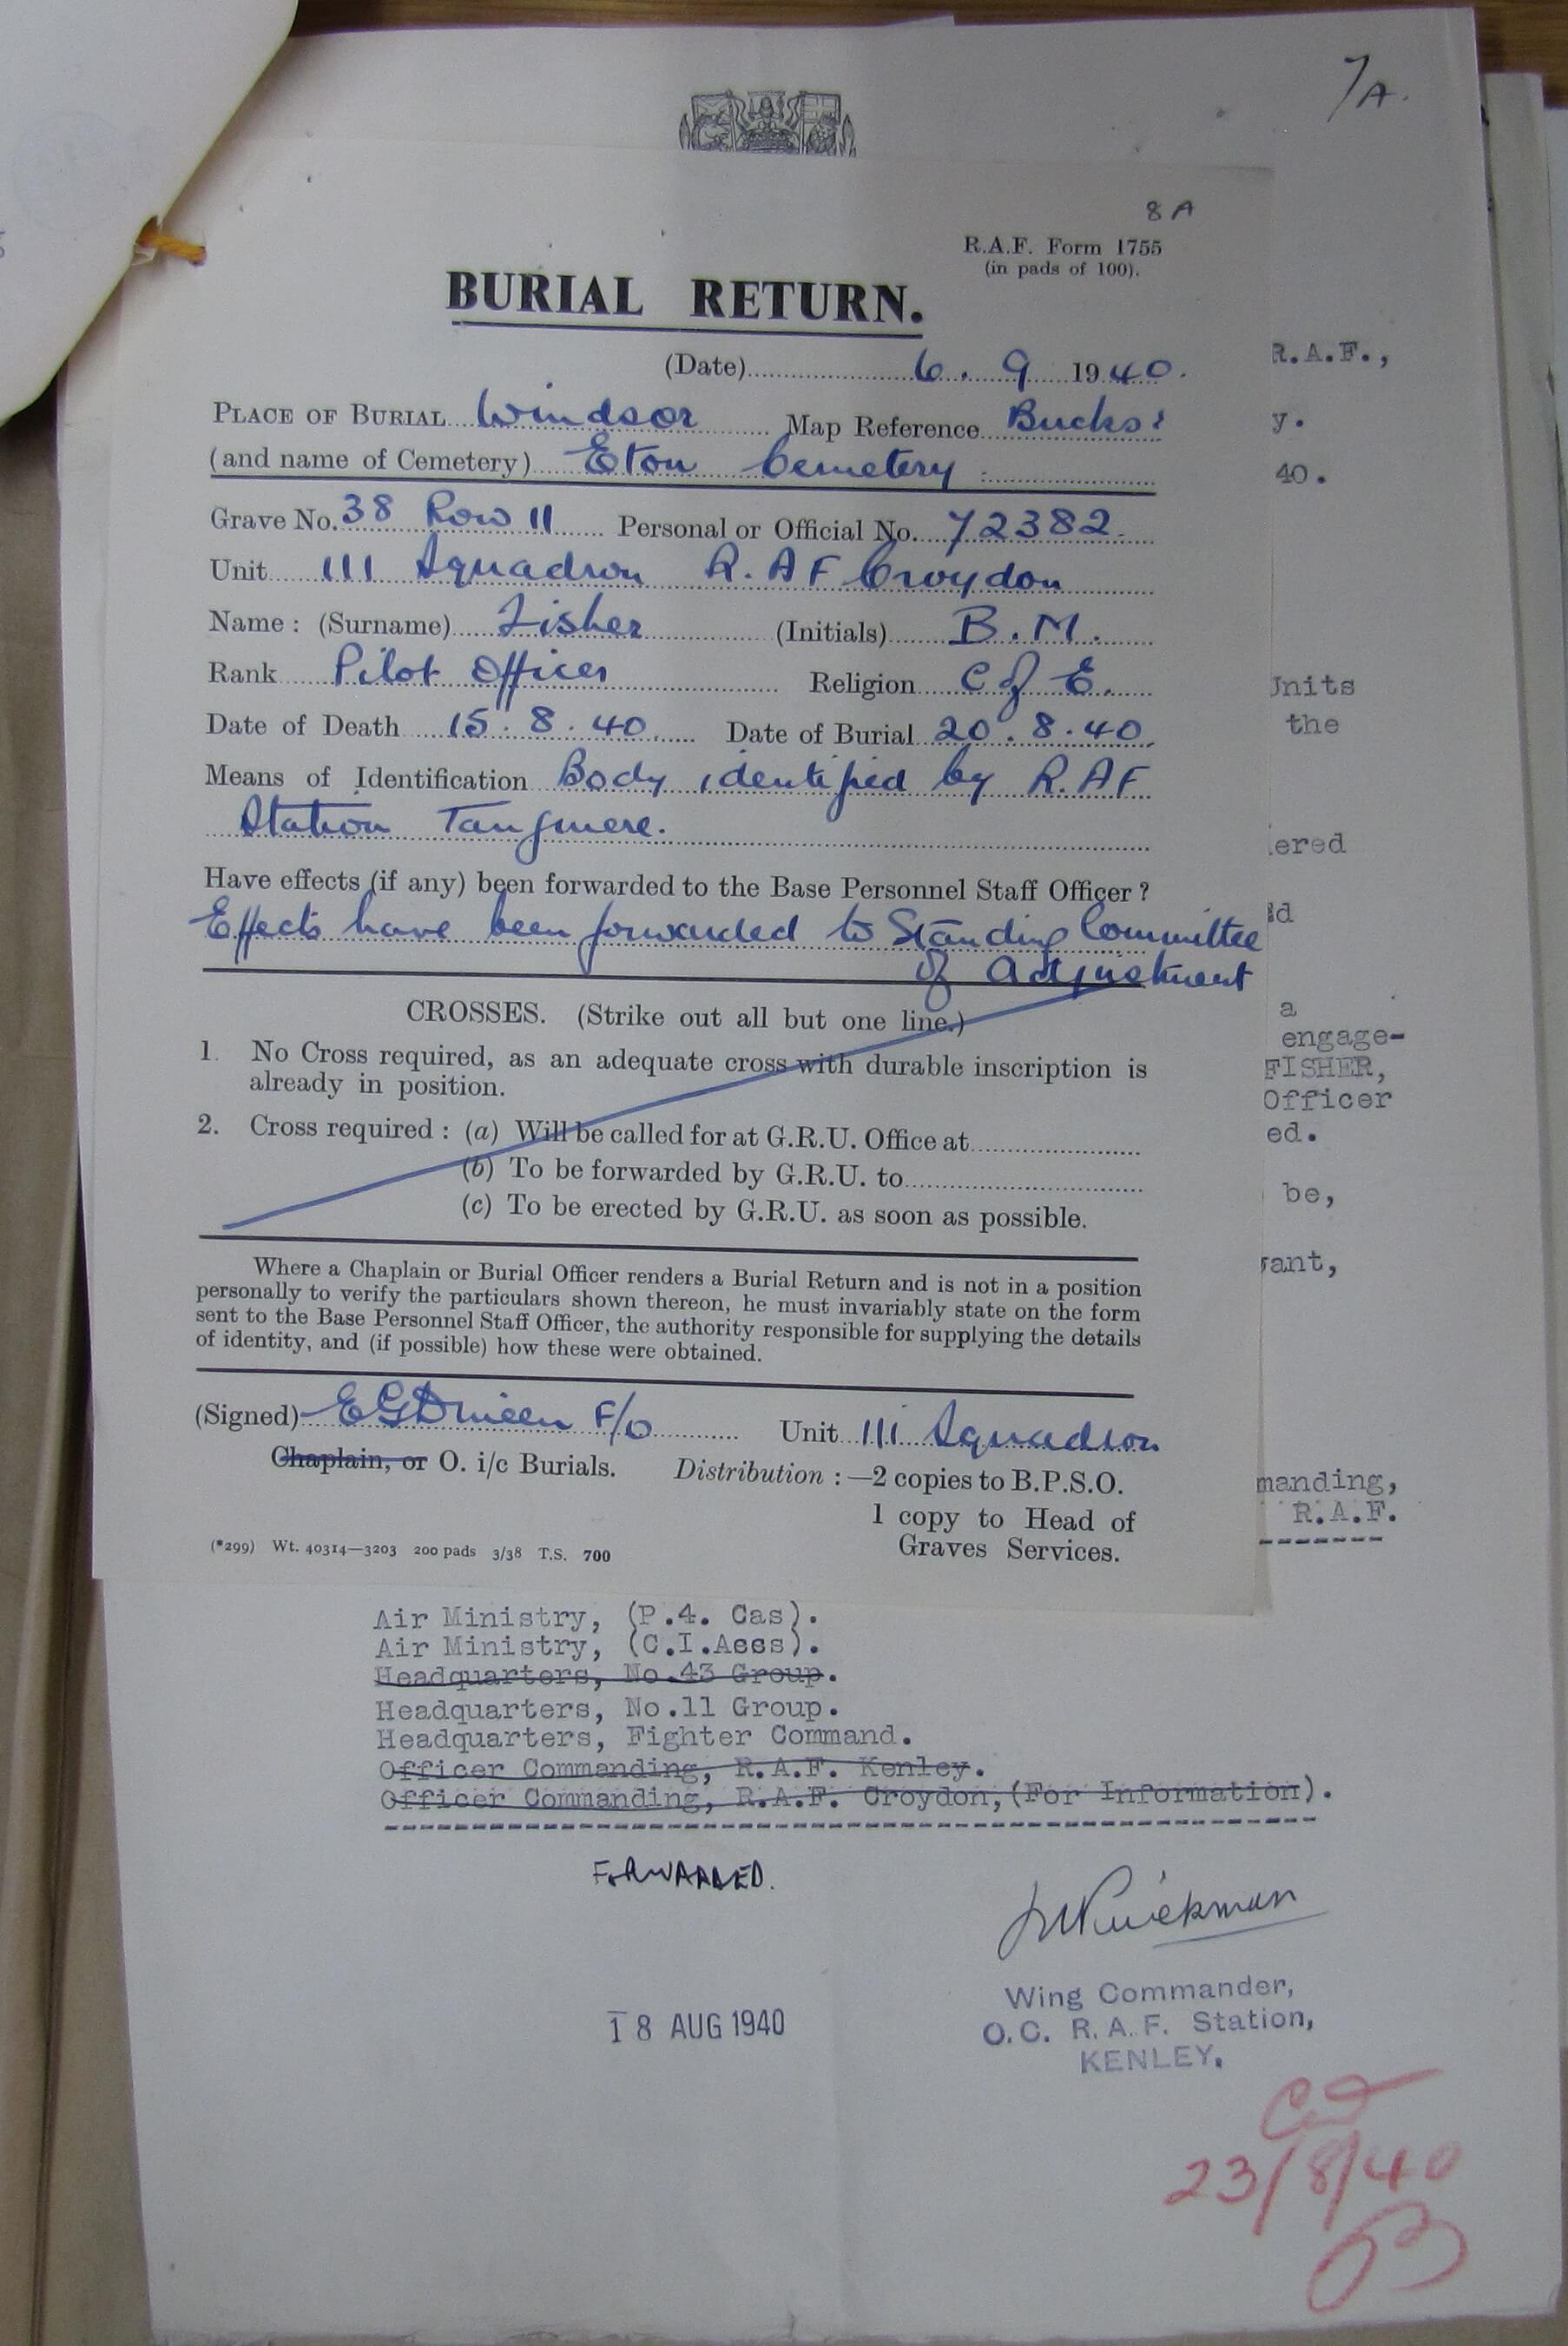 7A.
8 A
R.A.F. Form 1755
(in pads of 100).
BURIAL RETURN.
(Date) 6. 9 1940.
PLACE OF BURIAL Windsor Map Reference Bucks:
(and name of Cemetery) Eton Cemetery
Grave No. 38 Row 11 Personal or Official No. 72382.
Unit 111 Squadron R.AF Croydon
Name: (Surname) Fisher (Initials) B.M.
Rank Pilot Officer Religion C of E.
Date of Death 15.8.40. Date of Burial 20.8.40.
Means of Identification Body identified by R.AF
Station Tangmere.
Have effects (if any) been forwarded to the Base Personnel Staff Officer?
Effects have been forwarded to Standing Committee
of Adjustment
CROSSES. (Strike out all but one line.)
1. No Cross required, as an adequate cross with durable inscription is
already in position.
2. Cross required: (a) Will be called for at G.R.U. Office at
(b) To be forwarded by G.R.U. to
(c) To be erected by G.R.U. as soon as possible.
Where a Chaplain or Burial Officer renders a Burial Return and is not in a position
personally to verify the particulars shown thereon, he must invariably state on the form
sent to the Base Personnel Staff Officer, the authority responsible for supplying the details
of identity, and (if possible) how these were obtained.
(Signed) F/O Unit 111 Squadron
Chaplain, or O. i/c Burials. Distribution:—2 copies to B.P.S.O.
1 copy to Head of
Graves Services.
(*299) Wt. 40314—3203 200 pads 3/38 T.S. 700
R.A.F.,
y.
40.
Units
the
ered
ed
a
engage-
FISHER,
Officer
ed.
be,
vant,
manding,
R.A.F.
Air Ministry, (P.4. Cas).
Air Ministry, (C.I.Accs).
Headquarters, No.43 Group.
Headquarters, No.11 Group.
Headquarters, Fighter Command.
Officer Commanding, R.A.F. Kenley.
Officer Commanding, R.A.F. Croydon,(For Information).
FORWARDED.
18 AUG 1940
Wing Commander,
O.C. R.A.F. Station,
KENLEY.
23/8/40